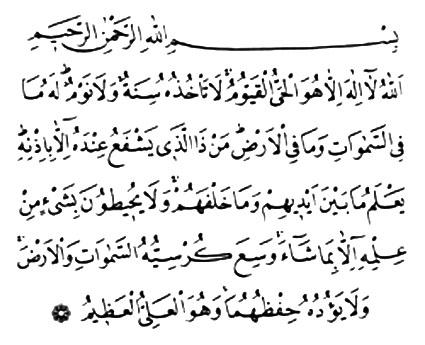 بِسْمِ اللهِ الرَّحْمٰنِ الرَّحِيمِ
اَللهُ لَآ اِلٰهَ اِلَّا هُوَ الْحَىُّ الْقَيُّومُ ۚ لَا تَأْخُذُهُ سِنَةٌ وَلَا نَوْمٌ ۜ لَهُ مَا
فِى السَّمٰوَاتِ وَمَا فِى الْاَرْضِ ۜ مَنْ ذَا الَّذٖى يَشْفَعُ عِنْدَهُٓ اِلَّا بِاِذْنِهٖ ۜ
يَعْلَمُ مَا بَيْنَ اَيْدٖيهِمْ وَمَا خَلْفَهُمْ ۚ وَلَا يُحٖيطُونَ بِشَىْءٍ مِنْ
عِلْمِهٖٓ اِلَّا بِمَا شَآءَ ۚ وَسِعَ كُرْسِيُّهُ السَّمٰوَاتِ وَالْاَرْضَ ۚ
وَلَا يَؤُدُهُ حِفْظُهُمَا ۚ وَهُوَ الْعَلِىُّ الْعَظٖيمُ